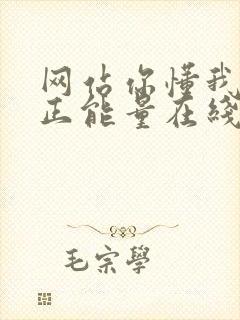 网站你懂我
正能量在线
毛宗學